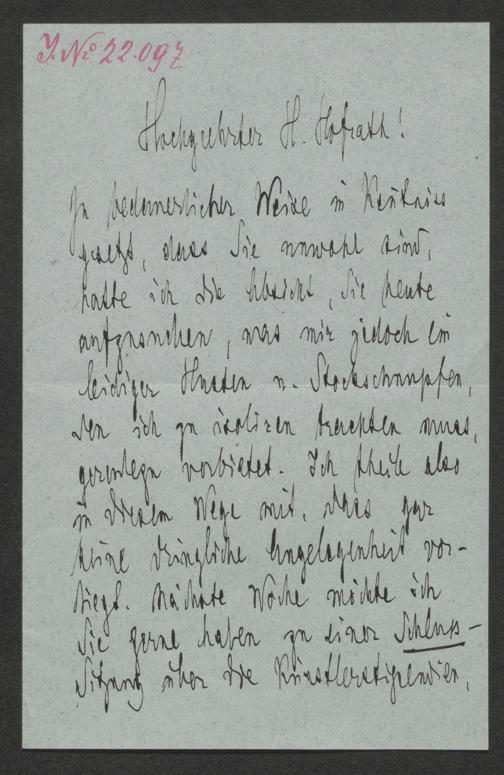 J. No 22.097
Hochgeehrter H. Hofrath!
In bedauerlicher Weise in Kentniss
gesetzt, dass Sie unwohl sind,
hatte ich die Absicht, Sie heute
aufzusuchen, was mir jedoch ein
leidiger Husten u. Stockschnupfen,
den ich zu isoliren trachten muss,
geradezu verbietet. Ich theile also
in diesem Wege mit, dass gar
keine dringliche Angelegenheit vor-
liegt. Nächste Woche möchte ich
Sie gerne haben zu einer Schluss-
Sitzung über die Künstlerstipendien,